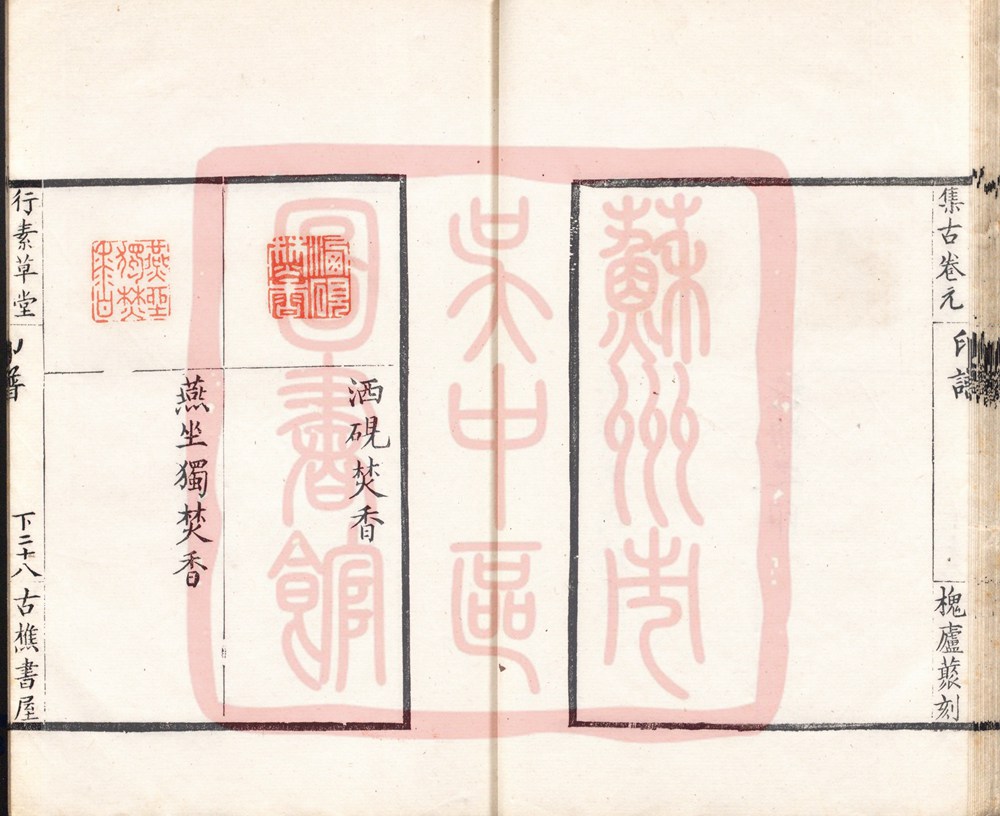 集古卷元
印譜
槐廬篆刻
蘇州市
吳中區
圖書館
洒硯焚香
洒硯焚香
燕坐獨焚香
燕坐獨焚香
行素草堂
印譜
下二十八
古樵書屋